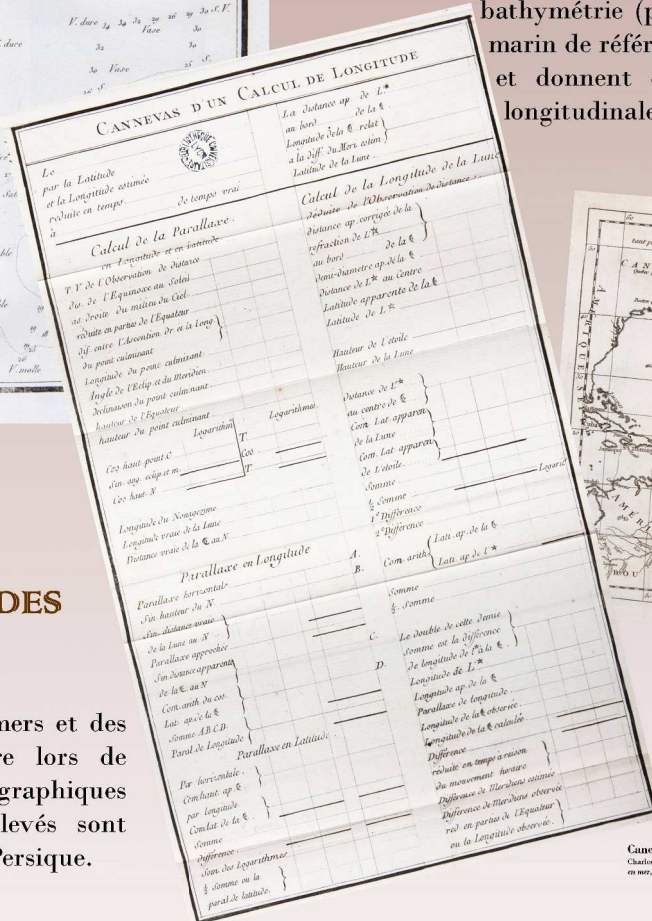 V. dure 34 34 32 29 26 29 30 S.V.
Vase 30
dure 32
30 Vase 25
bathymétrie (p
marin de référ
et donnent
longitudinale
CANNEVAS D'UN CALCUL DE LONGITUDE
Le
par la Latitude
et la Longitude estimée
reduite en temps
à de temps vrai
La distance ap. de L'*
au bord de la ☾
Longitude de la ☾. relat
a la diff. du Meri. estim
Latitude de la Lune
Calcul de la Parallaxe.
en Longitude et en latitude
T. V. de l'Observation de distance
dis. de l'Equinoxe au Soleil
as. droite du milieu du Ciel
réduite en parties de l'Equateur
dif. entre l'Ascention dr. et la Long.
du point culminant
Longitude du point culminant
Angle de l'Eclip. et du Meridien
declinaison du point culminant
hauteur de l'Equateur
hauteur du point culminant
Logarithm Logarithmes
Cos haut. point C T
Sin. ang. eclip. et m. Cos
Cos haut. N T
Longitude du Nonagezime
Longitude vraie de la Lune
Distance vraie de la ☾ au N.
Parallaxe en Longitude
Parallaxe horizontale A.
Sin hauteur du N B.
Sin distance vraie
de la Lune au N C.
Parallaxe approchée
Sin distance apparente D.
de la ☾ au N
Com. arith du cos.
Lat. ap. de la ☾
Somme A.B.C.D.
Paral. de Longitude
Parallaxe en Latitude
Par. horizontale
Com haut ap. ☾
par longitude
Com lat de la ☾
Somme
différence
Som. des Logarithmes
½ Somme ou la
paral. de latitude.
Calcul de la Longitude de la Lune
déduite de l'Observation de distance
distance ap. corrigée de la
refraction de L'*
au bord de la ☾
demi-diametre ap. de la ☾
distance de L'* au Centre
Latitude apparente de la ☾
Latitude de L'*
Hauteur de l'etoile
Hauteur de la Lune
Distance de L'*
au centre de ☾
Com. Lat apparen
de la Lune
Com. Lat. apparen
de L'etoile
Somme
½ Somme Logarit
1ere Différence
2e Différence
Com. arith Lati. ap. de la ☾
Lati. ap. de l'*
Somme
½ Somme
Le double de cette demie
Somme est la différence
de longitude de l'* à la ☾
Longitude de L'*
Longitude ap. de la ☾
Parallaxe de longitude
Longitude de la ☾ observée
Longitude de la ☾ calculée
Différence
reduite en temps à raison
du mouvement horaire
Différence de Meridiens estimée
Différence de Meridiens observée
red. en parties de l'Equateur
ou la Longitude observée.
DES
mers et des
re lors de
graphiques
levés sont
Persique.
V. molle
CAN
AMERI
Cane
Charles
en mer,